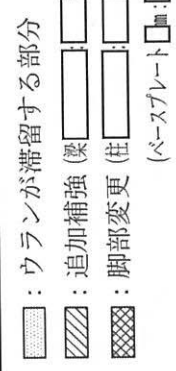 ：ウランが滞留する部分
：追加補強（梁
：脚部変更（柱
（ベースプレート